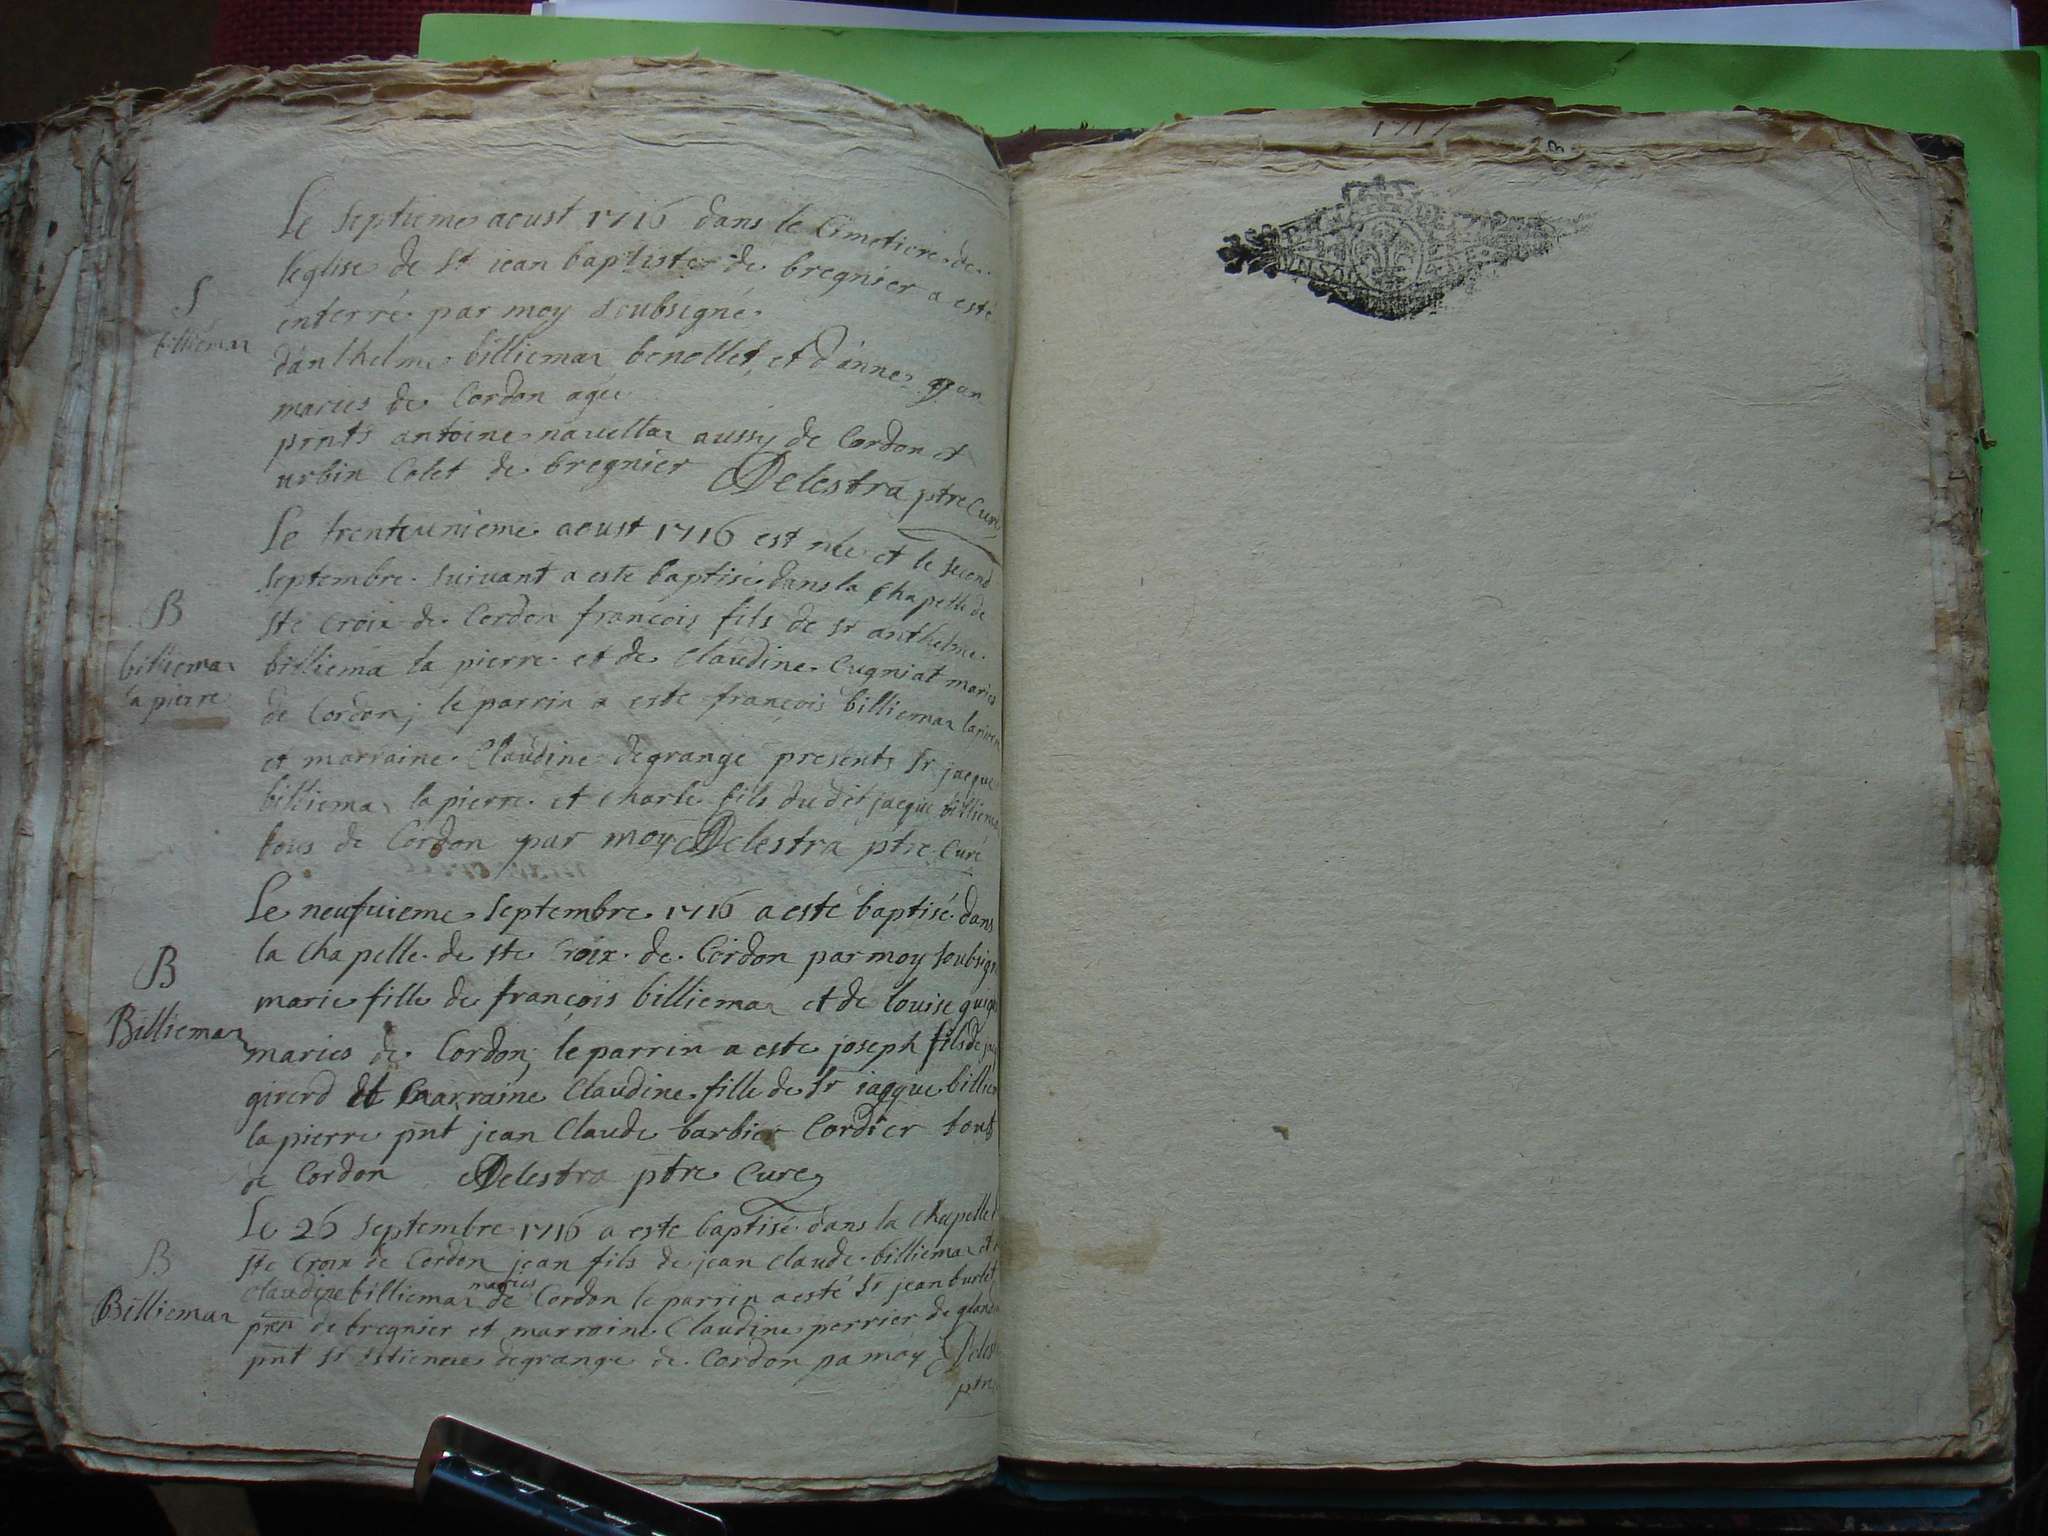 S
billiemaz
Le septieme aoust 1716 dans le Cimetiere de
l'eglise de st iean baptiste de bregnier a esté
enterré par moy soubsigné
d'anthelme billiemaz benollet, et d'anne
maries de Cordon agée
pnts antoine navettaz aussy de Cordon et
urbin Colet de bregnier Delestra ptre Curé
B
billiemaz
la pierre
Le trenteunieme aoust 1716 est née et le second
septembre suivant a esté baptisé dans la chapelle de
ste Croix de Cordon françois fils de sr anthelme
billiema la pierre et de Claudine Cugniat maries
de Cordon; le parrin a esté françois billiemaz lapierre
et marraine Claudine degrange presents sr jacque
billiemaz lapierre et Charle fils du dit jacque billiemaz
tous de Cordon par moy Delestra ptre Curé
B
Billiemaz
Le neufuieme septembre 1716 a esté baptisé dans
la Chapelle de ste Croix de Cordon par moy soubsigné
marie fille de françois billiemaz et de louise
maries de Cordon; le parrin a esté joseph fils de
girerd et marraine Claudine fille de sr iacque billiem
la pierre pnt jean Claude barbier Cordier touts
de Cordon Delestra ptre Curé
B
Billiemaz
Le 26 septembre 1716 a esté baptisé dans la chapelle d
ste Croix de Cordon jean fils de jean claude billiemaz et
claudine billiemaz maries de Cordon le parrin a esté sr jean burlet
de bregnier et marraine Claudine perrier de
pnt sr estienne degrange de Cordon pa moy Deles
ptre
1717